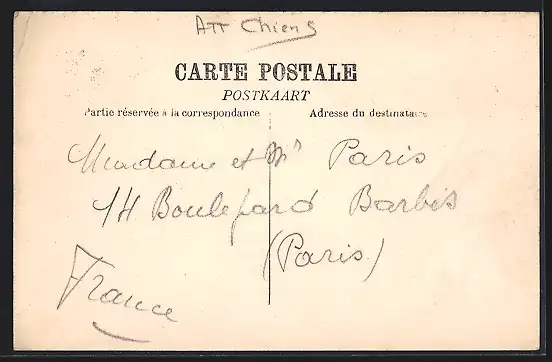 Att Chiens
CARTE POSTALE
POSTKAART
Partie réservée à la correspondance
Adresse du destinataire
Madame et Mr Paris
14 Boulevard Barbès
(Paris)
France